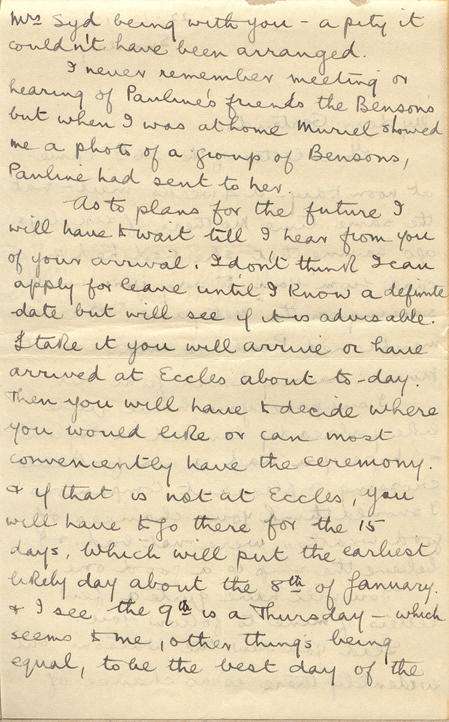 Mrs Syd being with you – a pity it
couldn't have been arranged.
I never remember meeting or
hearing of Pauline's friends the Bensons
but when I was at home Muriel showed
me a photo of a group of Bensons,
Pauline had sent to her.
As to plans for the future I
will have to wait till I hear from you
of your arrival. I don't think I can
apply for leave until I know a definite
date but will see if it is advisable.
I take it you will arrive or have
arrived at Eccles about to-day.
Then you will have to decide where
you would like or can most
conveniently have the ceremony.
& if that is not at Eccles, you
will have to go there for the 15
days, which will put the earliest
likely day about the 8th of January.
& I see the 9th is a Thursday – which
seems to me, other things being
equal, to be the best day of the